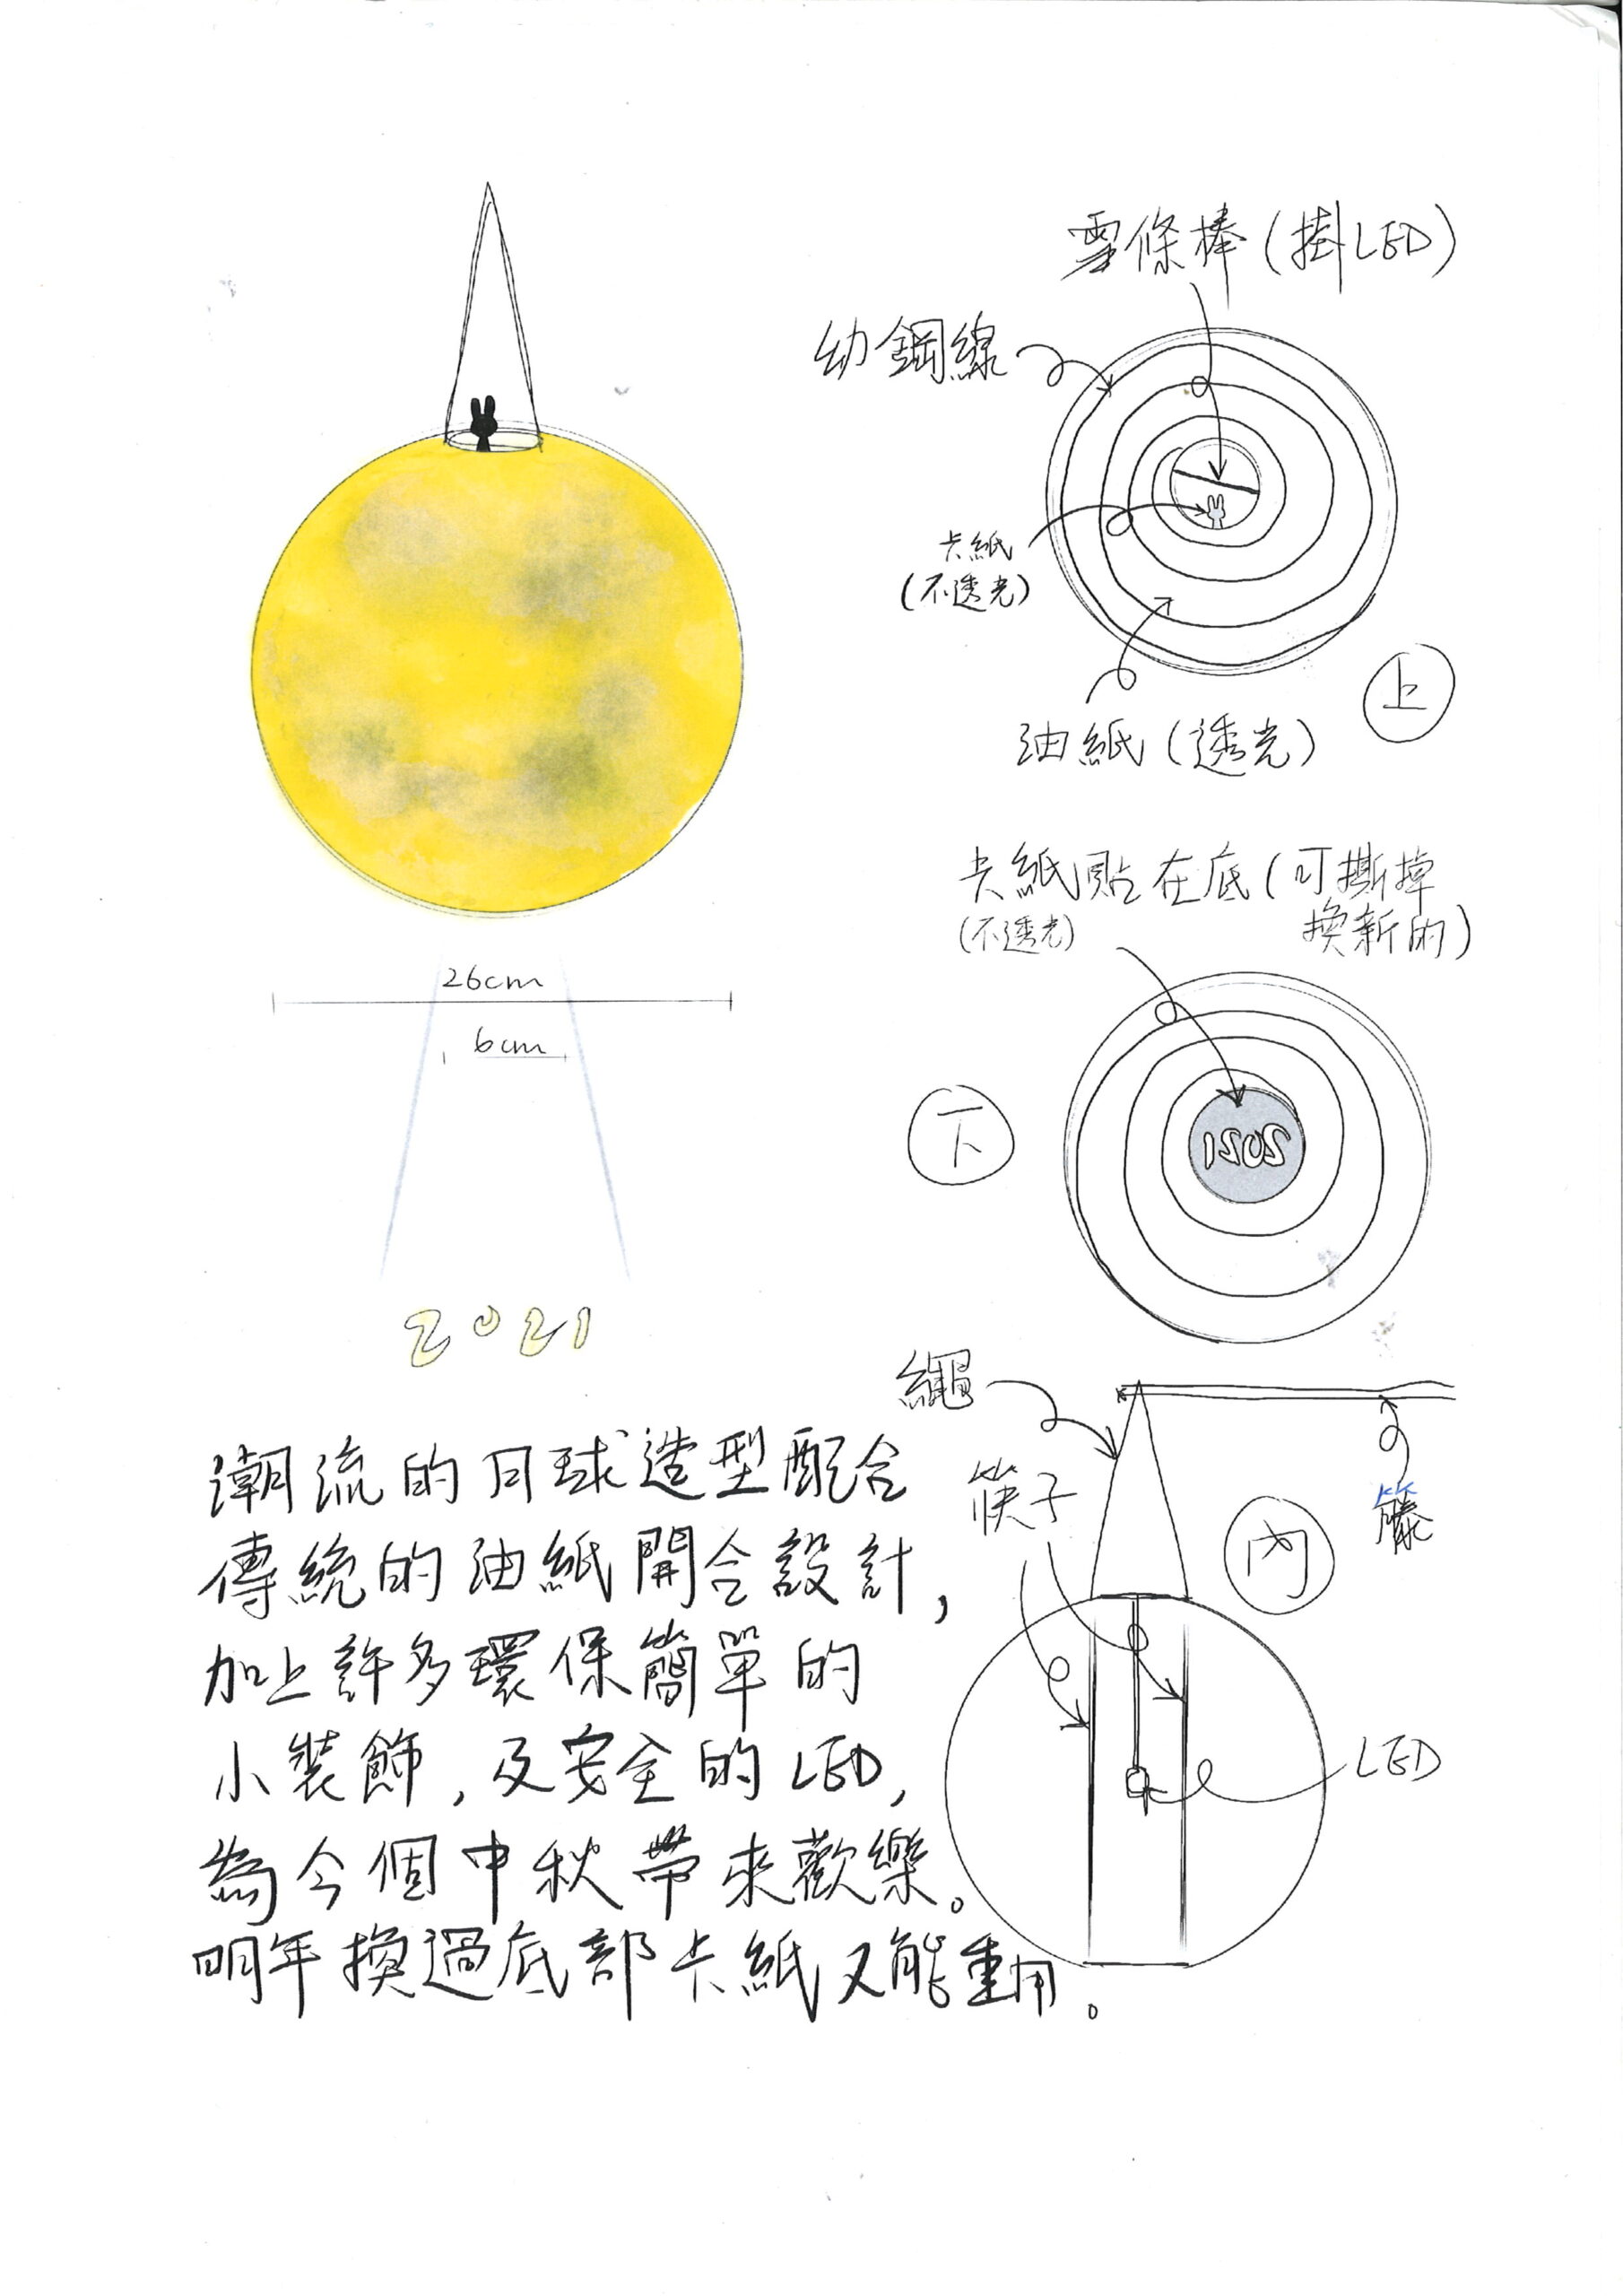 雪條棒(掛LED)
幼鋼線
卡紙
(不透光)
油紙(透光)
上
卡紙貼在底(可撕掉
(不透光)
換新的)
26cm
6cm
下
2021
2021
繩
筷子
籐
內
LED
潮流的月球造型配合
傳統的油紙開合設計,
加上許多環保簡單的
小裝飾,及安全的LED,
為今個中秋帶來歡樂。
明年換過底部卡紙又能重用。